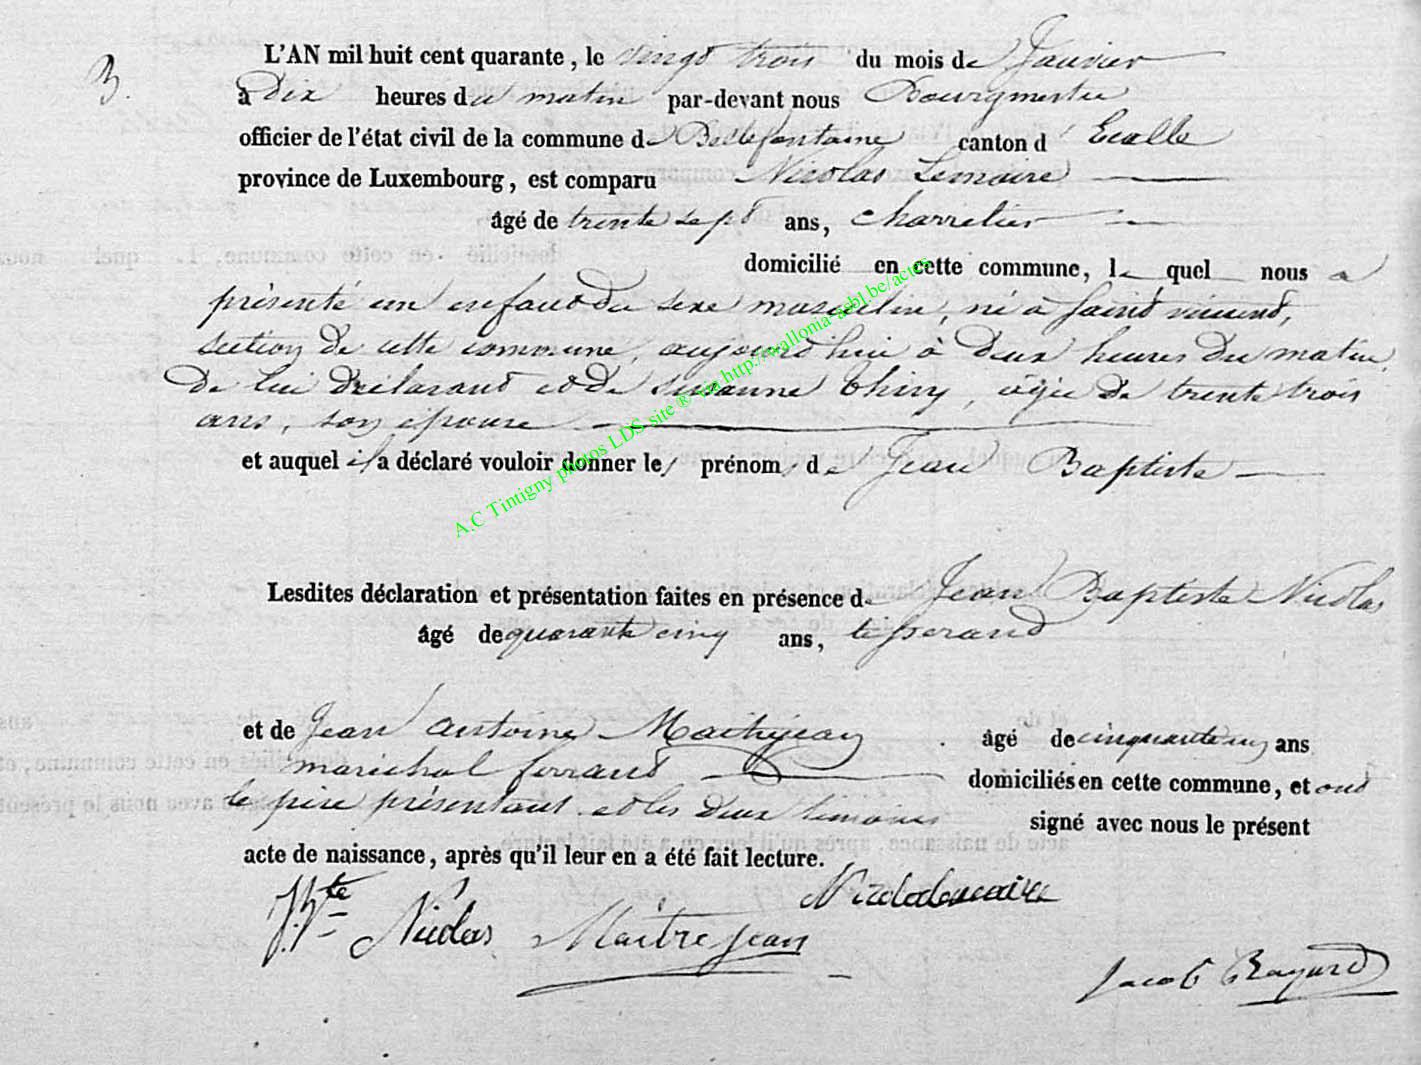 3.
L'AN mil huit cent quarante, le vingt trois du mois de Janvier
à Dix heures du matin par-devant nous Bourgmestre
officier de l'état civil de la commune de Bellefontaine canton d' Etalle
province de Luxembourg, est comparu Nicolas Lemaire
âgé de trente sept ans, charretier
domicilié en cette commune, le quel nous a
présenté un enfant du sexe masculin, né à Saint vincent,
section de cette commune, aujourd'hui à deux heures du matin,
de lui Déclarant et de Susanne Thiry, âgée de trente trois
ans, son épouse
et auquel il a déclaré vouloir donner les prénoms de Jean Baptiste
Lesdites déclaration et présentation faites en présence de Jean Baptiste Nicolas
âgé de quarante cinq ans, tisserand
et de Jean Antoine Maitrejean âgé de cinquante un ans
maréchal ferrant domiciliés en cette commune, et ont
le père présentant et les deux témoins signé avec nous le présent
acte de naissance, après qu'il leur en a été fait lecture.
J. Bte Nicolas Maitrejean Nicolas Lemaire
Jacob Bayard
A.C Tintigny photos LDS site ® via http://wallonia-asbl.be/actes